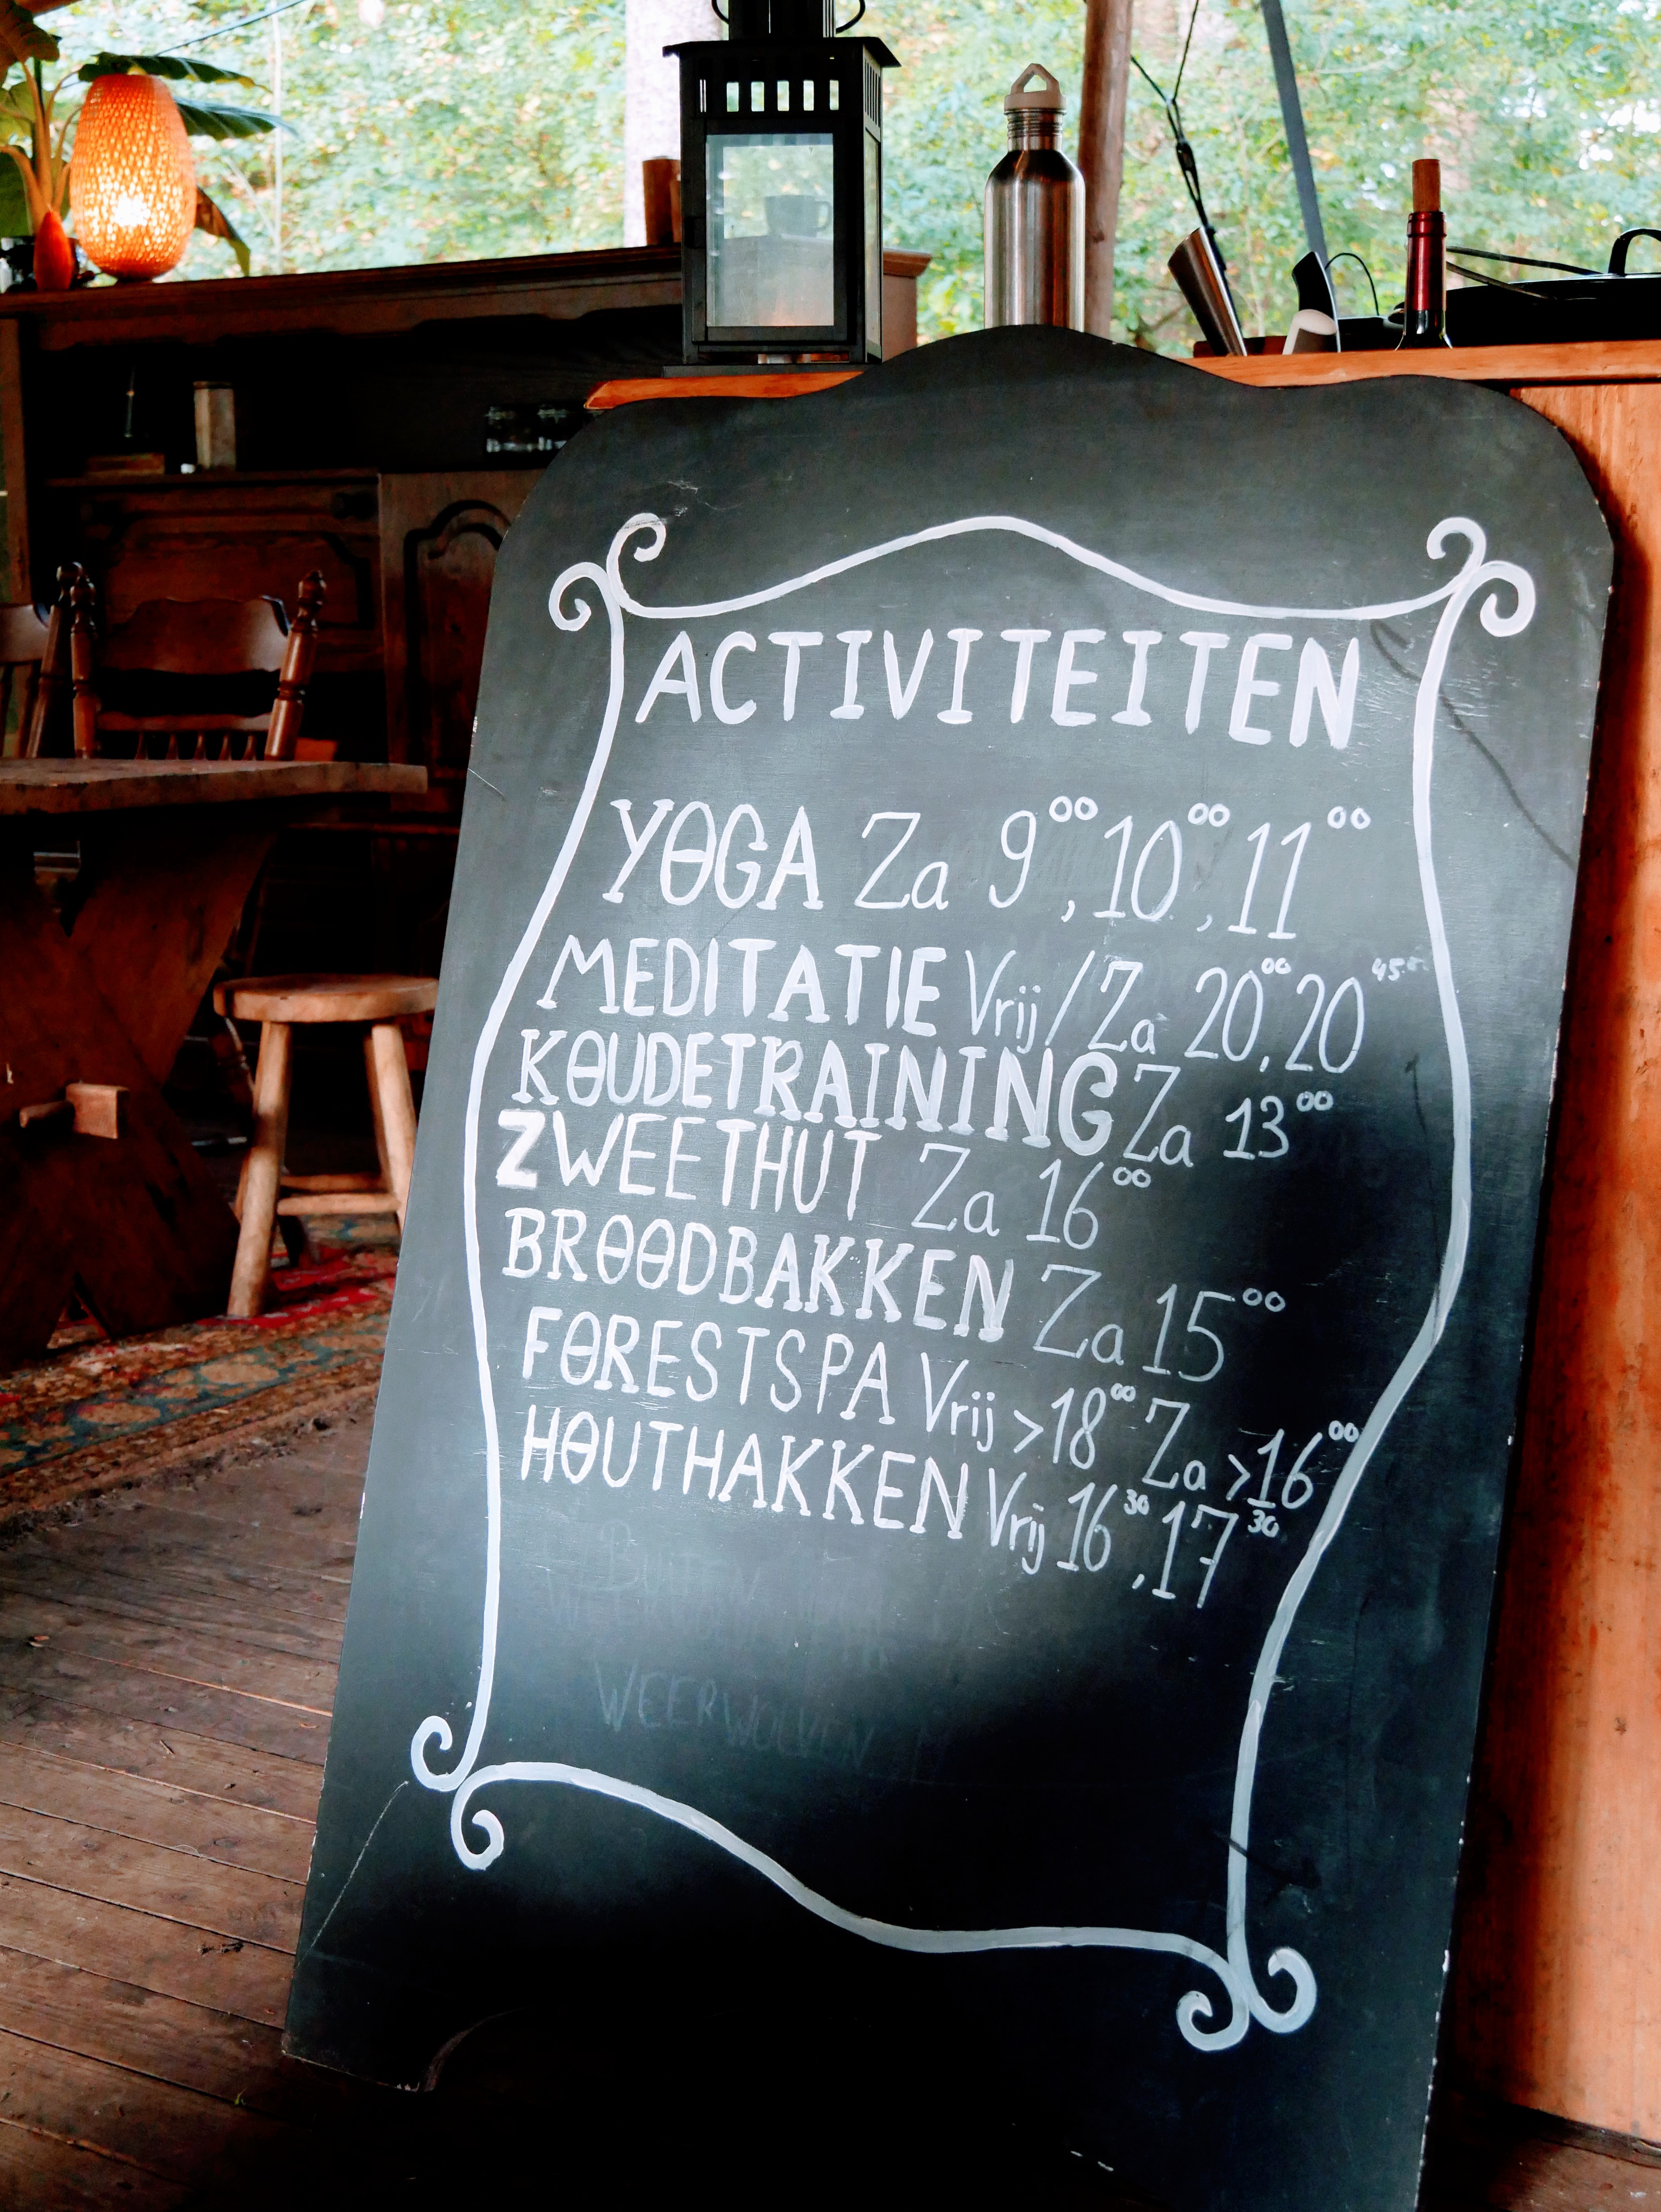 ACTIVITEITEN
YOGA Za 9⁰⁰, 10⁰⁰, 11⁰⁰
MEDITATIE Vrij/Za 20⁰⁰, 20⁴⁵
KOUDETRAINING Za 13⁰⁰
ZWEETHUT Za 16⁰⁰
BROODBAKKEN Za 15⁰⁰
FORESTSPA Vrij >18⁰⁰ Za >16⁰⁰
HOUTHAKKEN Vrij 16³⁰, 17³⁰
WEERWOLVEN